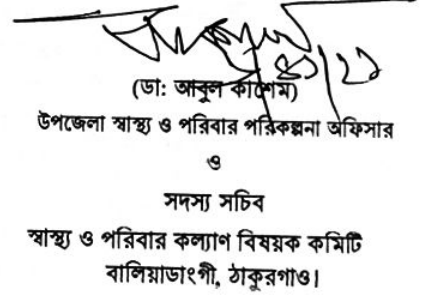 (ডা: আবুল কাশেম)
উপজেলা স্বাস্থ্য ও পরিবার পরিকল্পনা অফিসার
ও
সদস্য সচিব
স্বাস্থ্য ও পরিবার কল্যাণ বিষয়ক কমিটি
বালিয়াডাংগী, ঠাকুরগাও।